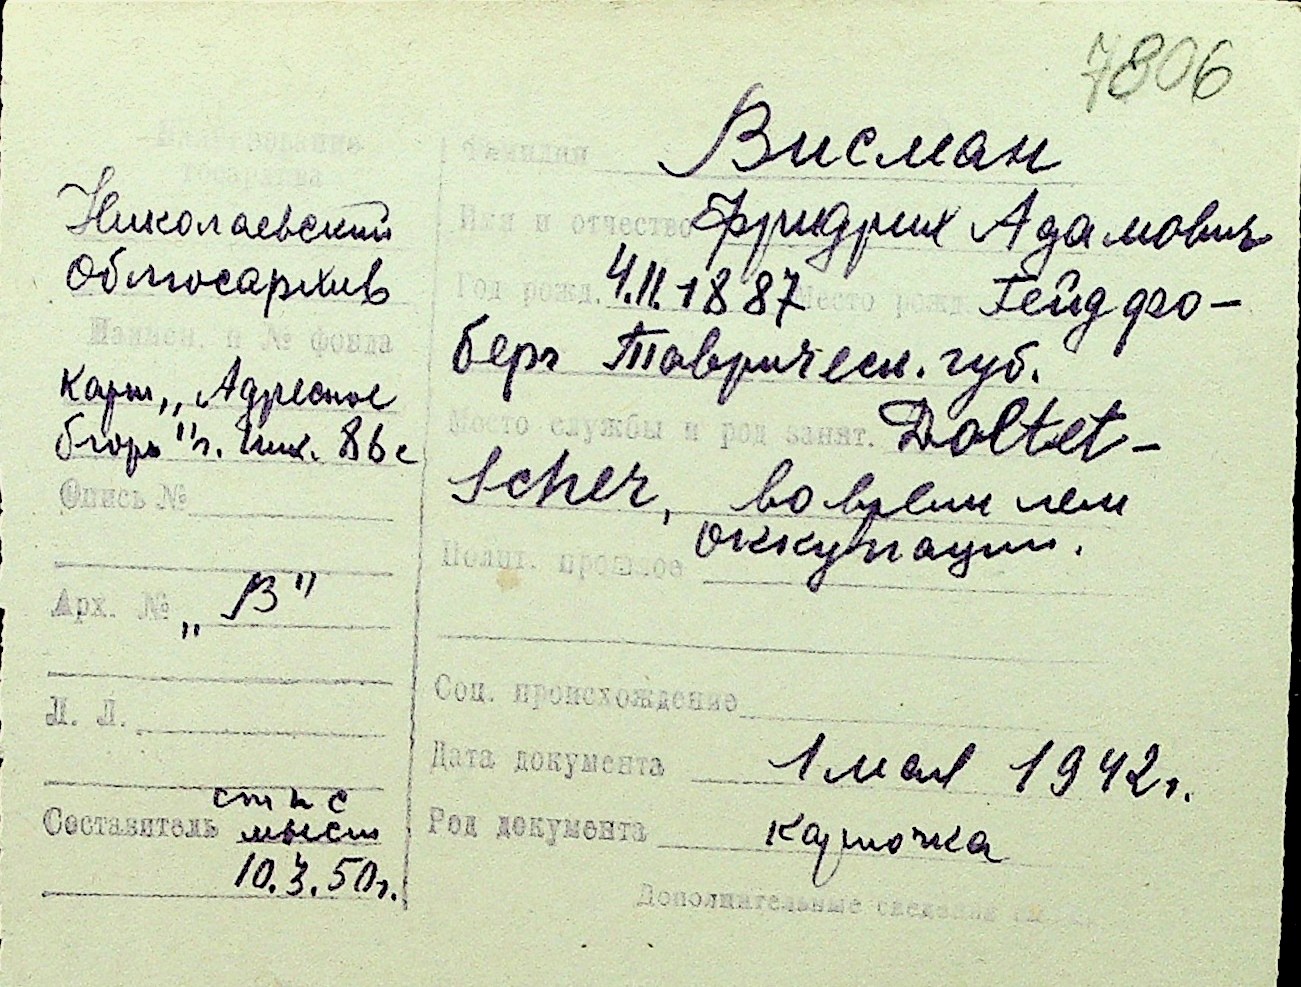 7806
Наименование
госархива
Николаевский
Облгосархив
Наимен. и № фонда
карт. „Адресное
бюро" г. Ник. 86 с
Опись №
Арх. № „В"
Л. Л.
Составитель
10.3.50г.
Фамилия Висман
Имя и отчество Фридрих Адамович
Год рожд. 4.II.1887 Место рожд. Гейдфро-
берг Тавричесн. губ.
Место службы и род занят. Doltet-
scher, во время нем
оккупации.
Полит. прошлое
Соц. происхождение
Дата документа 1 мая 1942г.
Род документа карточка
Дополнительные сведения